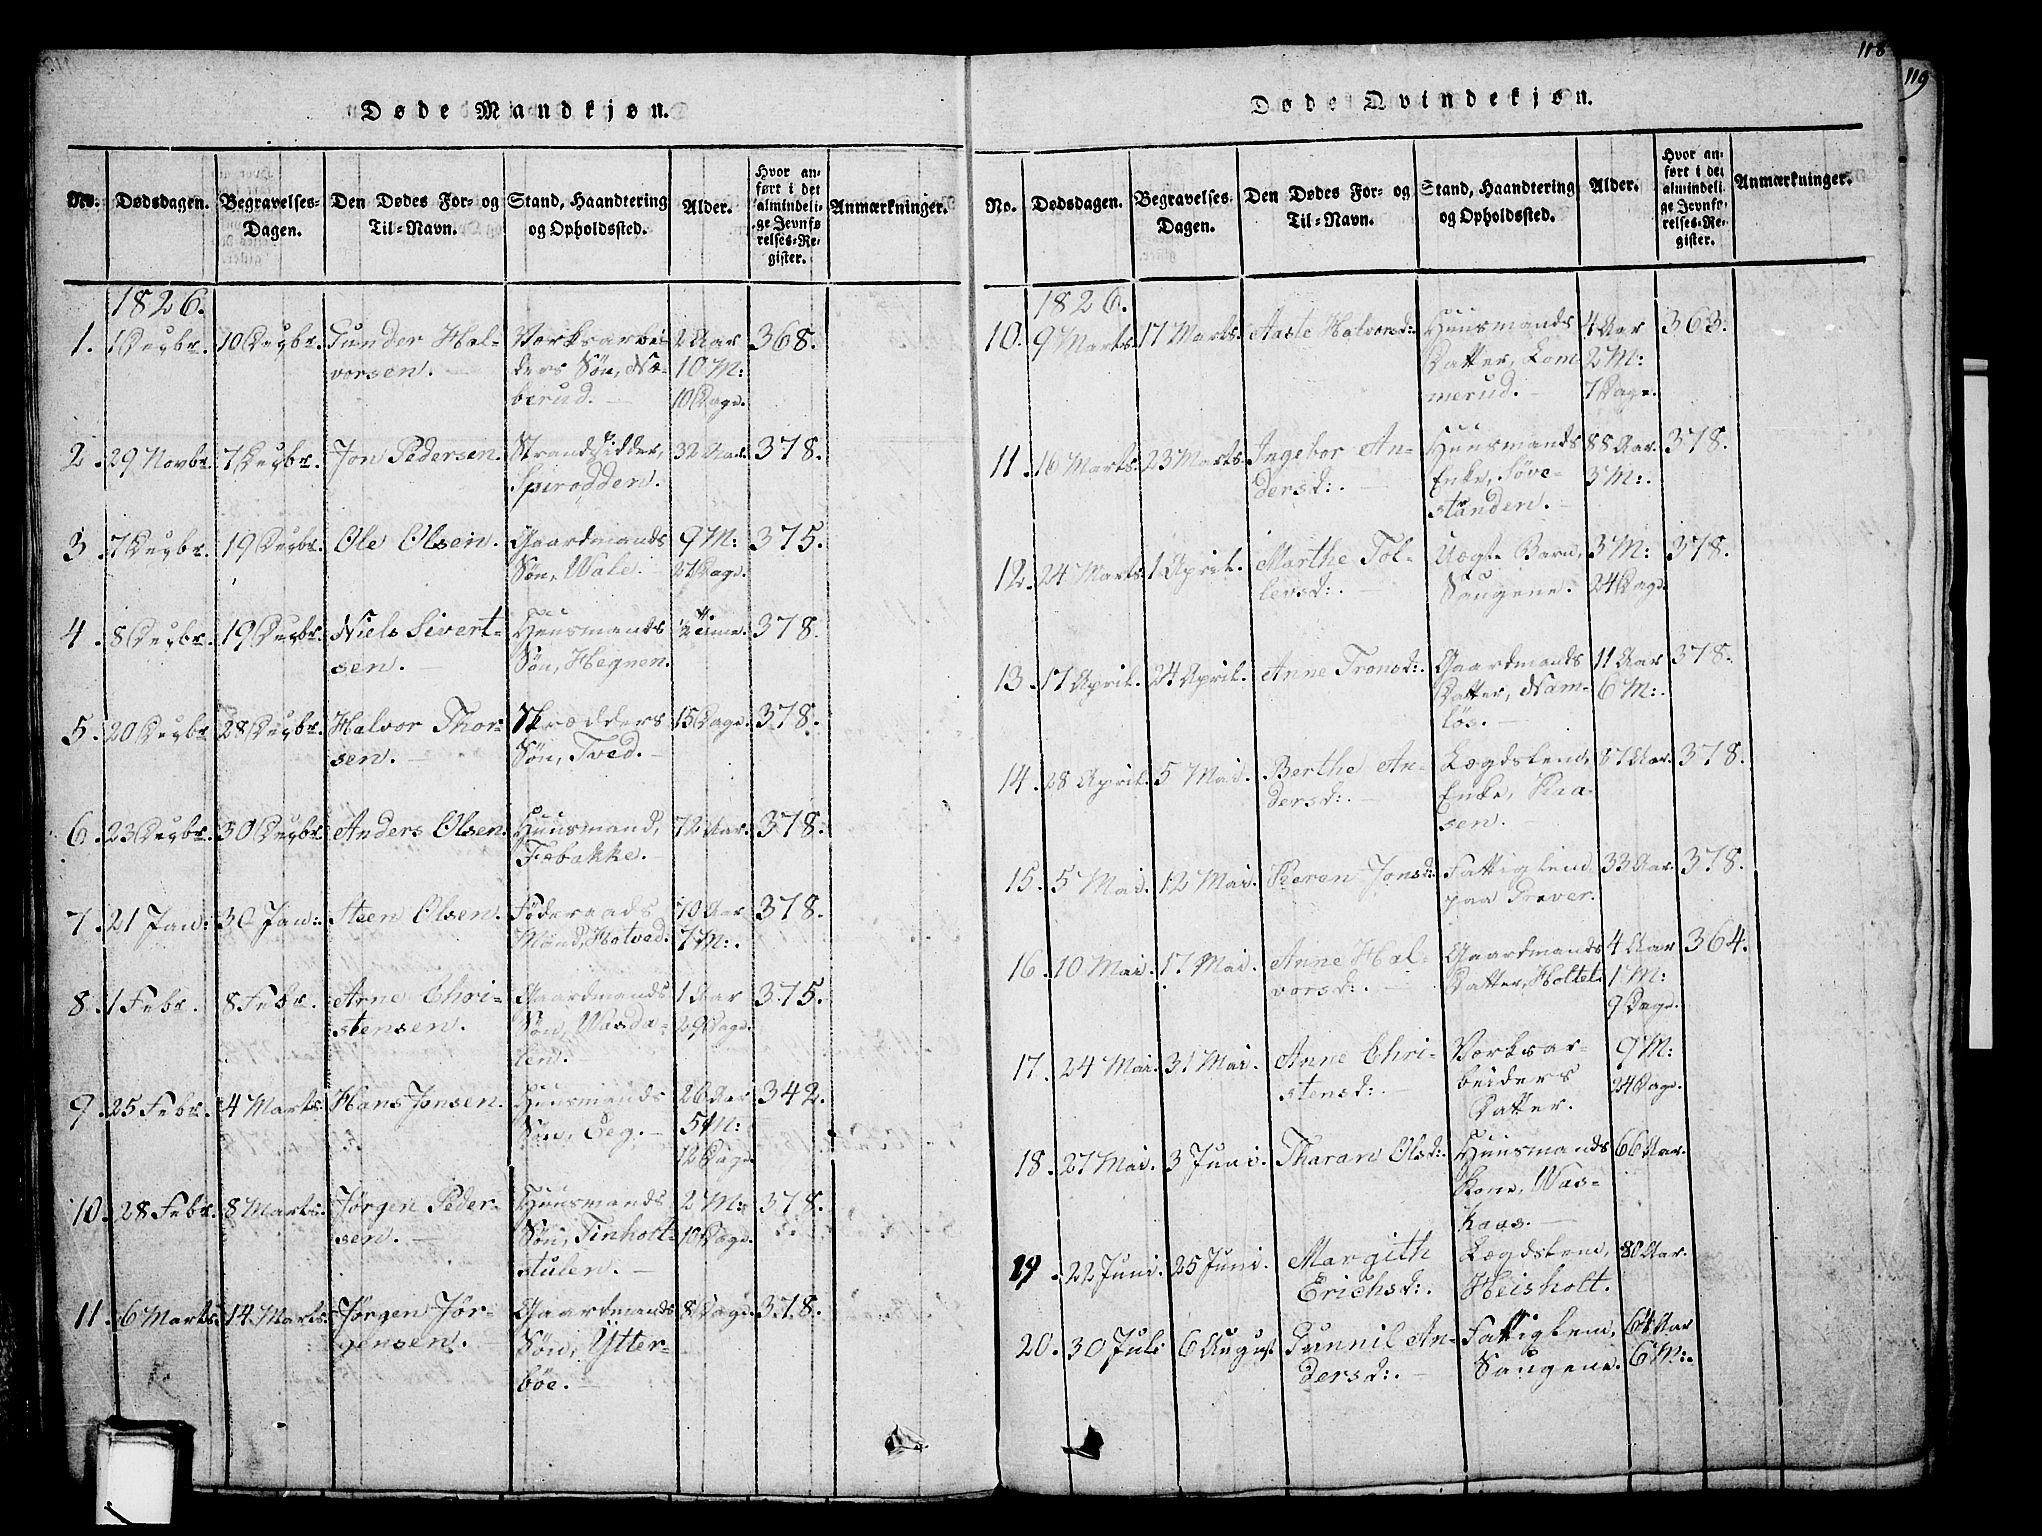 118
119
Døde Mandkjøn.
No. Dødsdagen. Begravelses-Dagen. Den Dødes For- og Til-Navn. Stand, Haandtering og Opholdssted. Alder. Hvor anført i det almindelige Jevnførelses-Register. Anmærkninger.
1826.
1. 1 Decbr. 10 Decbr. Gunder Hal- Værksarbei- 2 Aar 368.
vorsen. ders Søn, Næ- 10 M:
berud. 10 Dage.
2. 29 Novbr. 7 Decbr. Jon Pedersen. Strandsidder, 32 Aar. 378.
Spirodden.
3. 7 Decbr. 19 Decbr. Ole Olsen. Gaardmands 9 M: 375.
Søn, Wale 27 Dage.
4. 8 Decbr. 19 Decbr. Niels Sivert- Huusmands ½ Time. 378.
sen. Søn, Hegnen.
5. 20 Decbr. 28 Decbr. Halvor Thor- Skrædders 15 Dage. 378.
sen. Søn, Tved.
6. 23 Decbr. 30 Decbr. Anders Olsen. Huusmand, 72 Aar. 378.
Febakke.
7. 21 Jan: 30 Jan: Steen Olsen. Føderaads 70 Aar 378.
Mand, Hotved. 7 M:.
8. 1 Febr. 8 Febr. Arne Chri- Gaardmands 1 Aar 375.
stensen. Søn, Wasda- 29 Dage.
len.
9. 25 Febr. 4 Marts. Hans Jonsen. Huusmands 26 Aar 342.
Søn, Eeg. 5 M:
12 Dage
10. 28 Febr. 8 Marts. Jørgen Peder- Huusmands 2 M: 378.
sen. Søn, Tinholt- 10 Dage.
stulen.
11. 6 Marts. 14 Marts. Jørgen Jør- Gaardmands 8 Dage. 378.
gensen. Søn, Ytter-
böe.
Døde Qvindekjøn.
No. Dødsdagen. Begravelses Dagen. Den Dødes For- og Til-Navn. Stand, Haandtering og Opholdssted. Alder. Hvor anført i det almindelige Jevnførelses-Register. Anmærkninger.
1826.
10. 9 Marts. 17 Marts. Aaste Halvorsd: Huusmands 4 Aar 363.
Datter, Lom- 2 M:
merud. 7 Dage.
11. 16 Marts. 23 Marts. Ingebor An- Huusmands 88 Aar. 378.
dersd:. Enke, Söve- 3 M:.
standen.
12. 24 Marts. 1 April. Marthe Tol- Uægte Barn, 3 M: 378.
levsd:. Saugene. 24 Dage
13. 17 April. 24 April. Anne Tronsd:. Gaardmands 11 Aar 378.
Datter, Nam- 6 M:.
lös.
14. 28 April. 5 Mai. Berthe An- Lægdslem, 87 Aar. 378.
dersd:. Enke, Raa-
sen.
15. 5 Mai. 12 Mai. Peeren Jonsd: Fattiglem 33 Aar. 378.
paa Græver.
16. 10 Mai. 17 Mai. Anne Hal- Gaardmands 4 Aar 364.
vorsd:. Datter, Holtet. 1 M:
9 Dage.
17. 24 Mai. 31 Mai. Anne Chri- Værksar- 9 M:
stensd:. beiders 24 Dage.
Datter.
18. 27 Mai. 3 Juni. Tharan Olsd: Huusmands 66 Aar.
Kone, Was-
kaas.
19. 22 Juni. 25 Juni. Margith Lægdslem, 80 Aar.
Erichsd:. Heisholt.
20. 30 Juli 6 August Gunnil An- Fattiglem, 64 Aar
dersd:. Saugene. 6 M:.